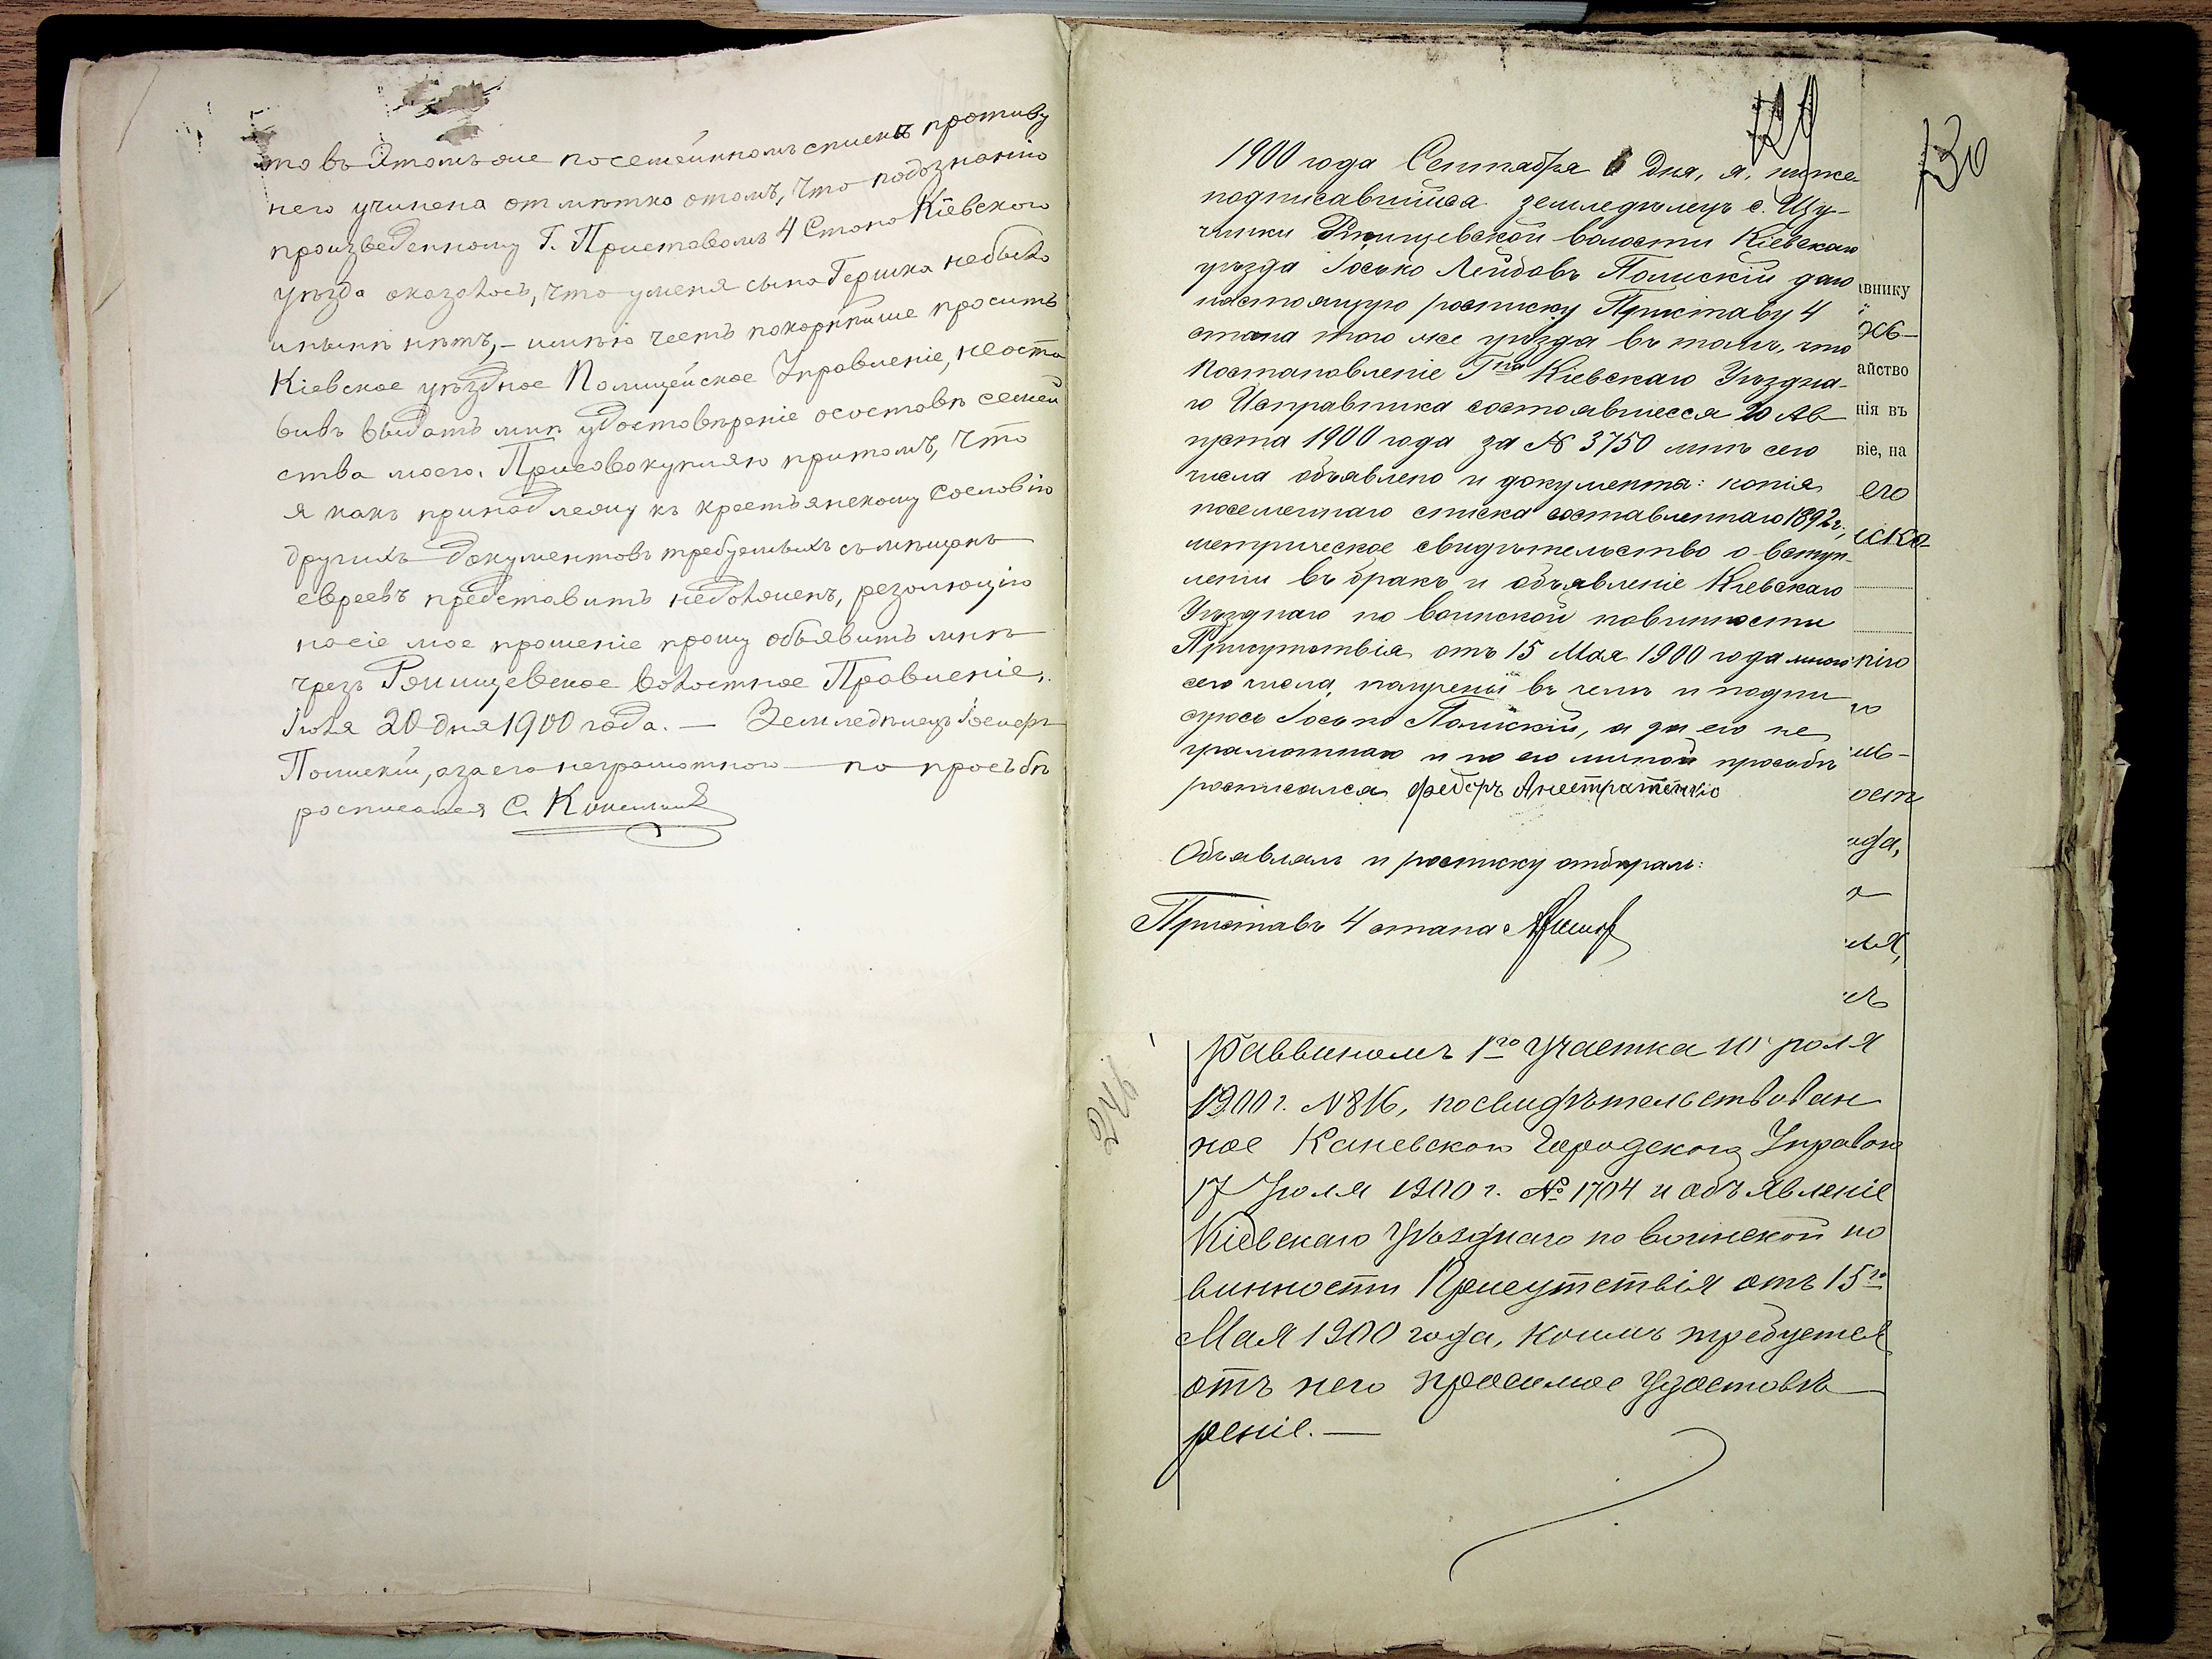 то въ Этомъ же посемейномъ спискѣ противу
него учинена отмѣтка отомъ, что подознанію
произведенному Г. Приставомъ 4 Стана Кіевского
уѣзда оказалось, что уменя сына Гершка небыло
инынѣ нѣтъ, – имѣю честь покорнѣйше просить
Кіевское уѣздное Полицейское Управленіе, неоста
вивъ выдать мнѣ удостовѣреніе осоставѣ семей
ства моего. Присовокупляю притомъ, что
я какъ принадлежу къ крестьянскому Сословію
другихъ документовъ требуемыхъ съ мѣщанъ
евреевъ представить недолженъ, резолюцію
насіе мое прошеніе прошу объявить мнѣ
чрезъ Ржищевское волостное Правленіе.
Іюля 20 дня 1900 года. — Земледѣлецъ Іосифъ
Полискій, азаего неграмотного по просьбѣ
росписался С.
129
130
1900 года Сентября 6 Дня, я, ниже
подписавшійся земледѣлецъ с. Щу-
чинки Ржищевской волости Кіевскаго
уѣзда Іосько Лейбовъ Полискій даю
настоящую росписку Приставу 4
стана того же уѣзда въ томъ, что
Постановленіе Гна Кіевскаго Уѣздна-
го Исправника состоявшееся 20 Ав
густа 1900 года за № 3750 мнѣ сего
числа объявлено и документы: копія
посемейнаго списка составленнаго 1892 г.,
метрическое свидѣтельство о вступ-
леніи въ бракъ и объявленіе Кіевскаго
Уѣзднаго по воинской повинности
Присутствія отъ 15 Мая 1900 года мною
сего числа получены въ чемъ и подпи
суюсь Іосько Полискій, а за его не
грамотнаго и по его личной просьбѣ
росписался Федоръ Анестратенко
Объявлялъ и росписку отбиралъ:
Приставъ 4 стана
внику
айство
нія въ
віе, на
его
ода,
246
раввиномъ 1го участка 10 юля
1900 г. № 816, посвидѣтельствован
ное Каневскою Городскою Управою
17 Іюля 1900 г. № 1704 и объявленіе
Кіевскаго Уѣзднаго по воинской по
винности Присутствія отъ 15го
Мая 1900 года, коимъ требуется
отъ него просимое удостовѣ
реніе. —